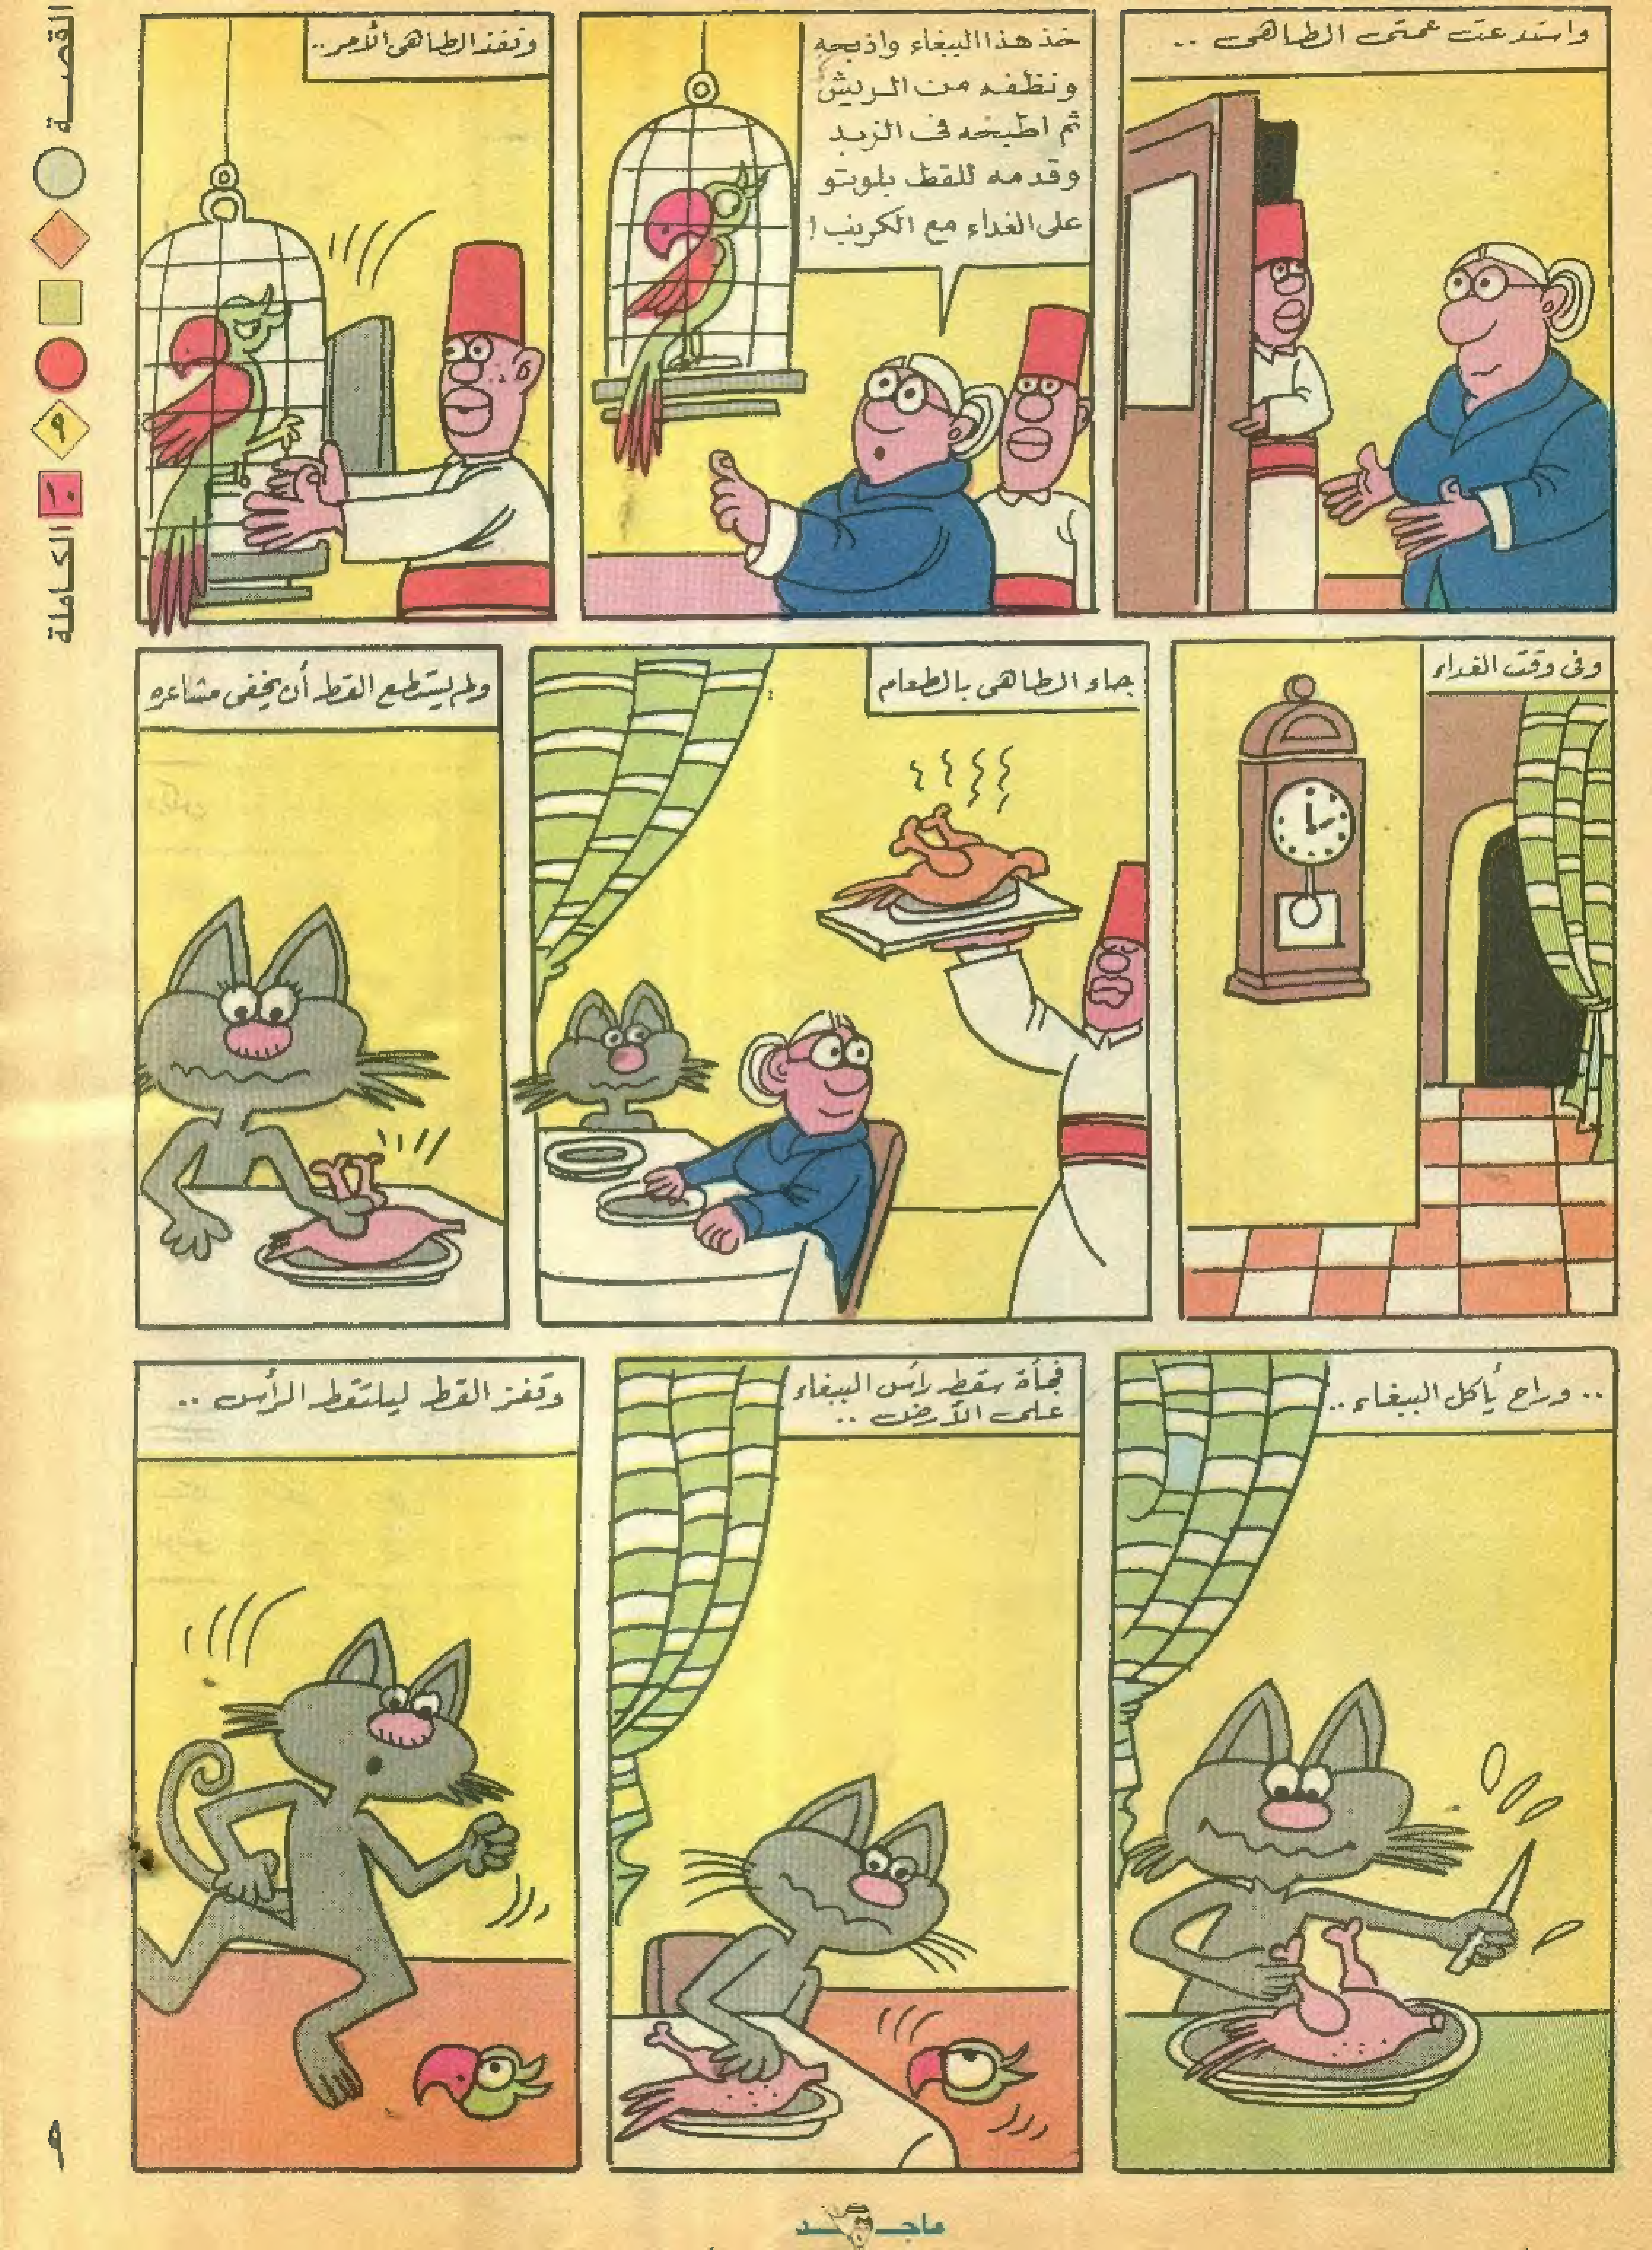 القصة
٩
١٠
الكاملة
واستدعت عمتى الطاهى ..
خذ هذا الببغاء واذبحه
ونظفه من الريش
ثم اطبخه فى الزبد
وقدمه للقط بلوتو
على الغداء مع الكرنب !
ونفذ الطاهى الأمر ..
وفى وقت الغداء
جاء الطاهى بالطعام
ولم يستطع القط أن يخفى مشاعره
.. وراح يأكل الببغاء ..
فجأة سقط رأس الببغاء
على الأرض ..
وقفز القط ليلتقط الرأس ..
٩
ماجد